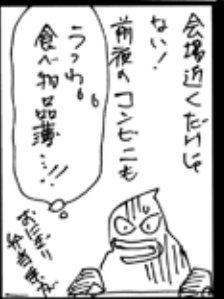 会場近くだけじゃ
ない!
前後のコンビニも
うっわ。。
食べ物品薄…!!
おにぎり
弁当系が